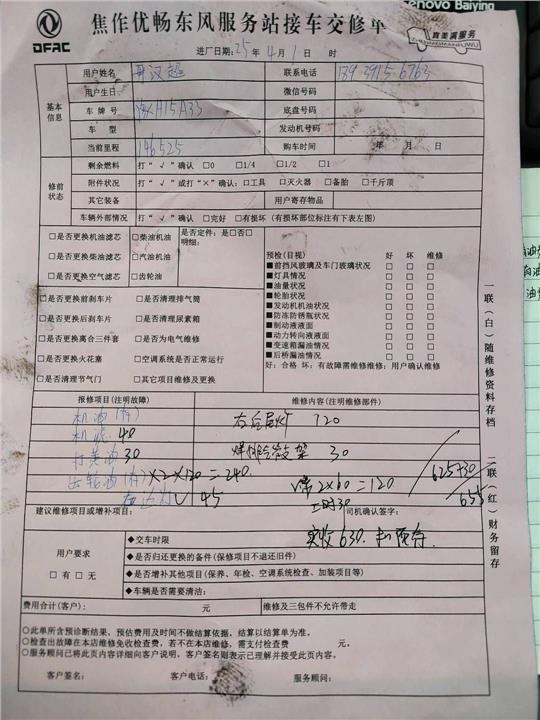 Lenovo Baiying
DFAC
焦作优畅东风服务站接车交修单
真美满服务
ZHENMEIMANFUWU
进厂日期:25年4月1日 时
基本信息
用户姓名 联系电话
用户生日 微信号码
车牌号 A15A33 底盘号码
车型 发动机号码
当前里程 146525 购车时间 年 月 日
修前状态
剩余燃料 打“√”确认 □0 □1/4 □1/2 □1
附件状况 打“√”或打“×”确认:□工具 □灭火器 □备胎 □千斤顶
其它装备 用户寄存物品
车辆外部情况 打“√”确认 □完好 □有损坏(有损坏部位标注有下表左图)
□是否更换机油滤芯 □柴油机油 是否定件:是□否□
□是否更换柴油滤芯 □汽油机油 明细:
□是否更换空气滤芯 □齿轮油
□是否更换前刹车片 □是否清理排气筒
□是否更换后刹车片 □是否清理尿素箱
□是否更换离合三件套 □是否为电气维修
□是否更换火花塞 □空调系统是否正常运行
□是否清理节气门 □其它项目维修及更换
预检(目视) 好 坏 维修
■前挡风玻璃及车门玻璃状况 □ □ □
■灯具情况 □ □ □
■油量状况 □ □ □
■轮胎状况 □ □ □
■发动机机油状况 □ □ □
■防冻防锈瓶状况 □ □ □
■制动液液面 □ □ □
■动力转向液液面 □ □ □
■变速箱漏油情况 □ □ □
■后桥漏油情况 □ □ □
好:合格 坏:有故障需维修维修:用户确认维修
报修项目(注明故障) 维修内容(注明维修部件)
机油(有) 右后尾灯 120
机滤 40
打黄油 30 架 30
齿轮油(有)×2×120=240
45 2×60=120
工时30
625+30
655
建议维修项目或增补项目: 司机确认签字:
实收630.
用户要求
□有□无
◆交车时限
◆是否归还更换的备件(保修项目不退还旧件)
◆是否增补其他项目(保养、年检、空调系统检查、加装项目等)
◆车辆是否需要清洁:
费用合计(客户): 元 维修及三包件不允许带走
○此单所含预诊断结果,预估费用及时间不做结算依据,结算以结算单为准。
○检查出故障在本店维修免收检查费,若不在本店维修,需支付检查费 元。
○服务顾问已将此页内容详细向客户说明,客户签名则表示已理解并接受此页内容。
客户签名: 客户电话: 服务顾问:
一联(白)随维修资料存档 二联(红)财务留存